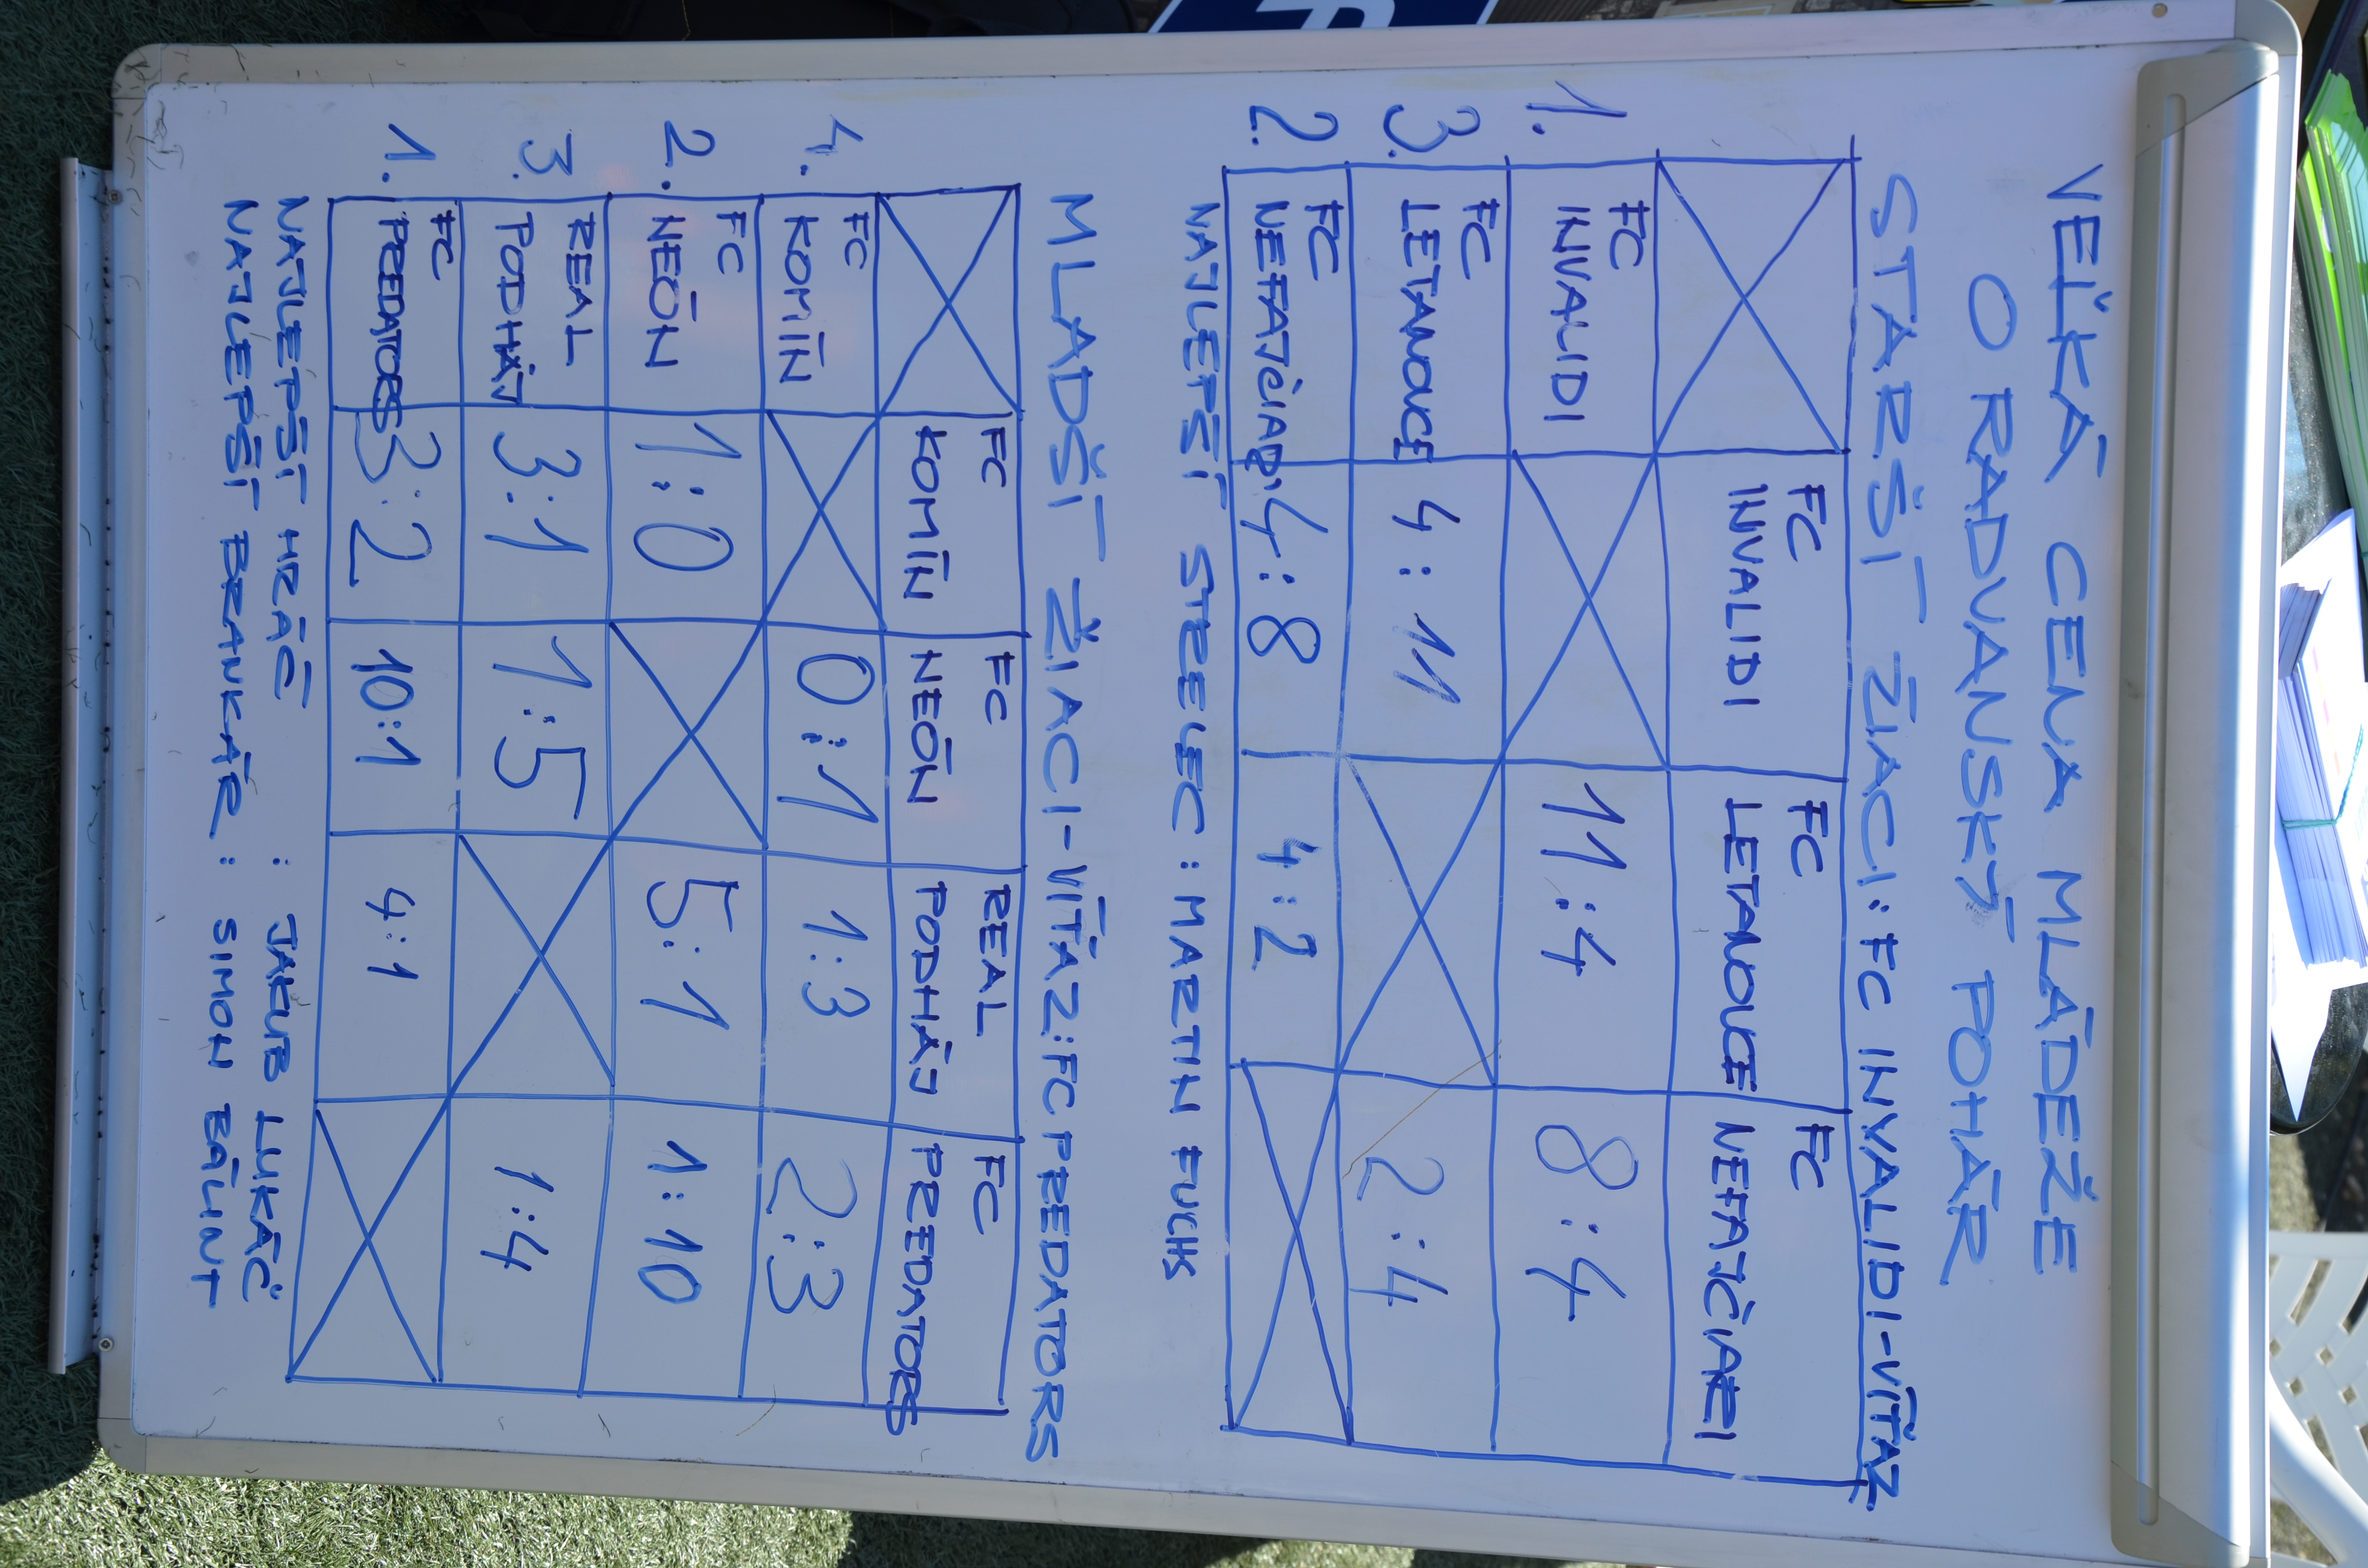 VEĽKÁ CENA MLÁDEŽE
O RADVANSKÝ POHÁR
STARŠÍ ŽIACI: FC INVALIDI-VÍŤAZ
FC INVALIDI FC LETANOVCE FC NEFAJČIARI
1. FC INVALIDI 11:4 8:4
3. FC LETANOVCE 4:11 2:4
2. FC NEFAJČIAR. 4:8 4:2
NAJLEPŠÍ STRELEC: MARTIN FUCHS
MLADŠÍ ŽIACI-VÍŤAZ: FC PREDATORS
FC KOMÍN FC NEÓN REAL PODHÁJ FC PREDATORS
4. FC KOMÍN 0:1 1:3 2:3
2. FC NEÓN 1:0 5:1 1:10
3. REAL PODHÁJ 3:1 1:5 1:4
1. FC PREDATORS 3:2 10:1 4:1
NAJLEPŠÍ HRÁČ : JAKUB LUKÁČ
NAJLEPŠÍ BRANKÁR : SIMON BÁLINT